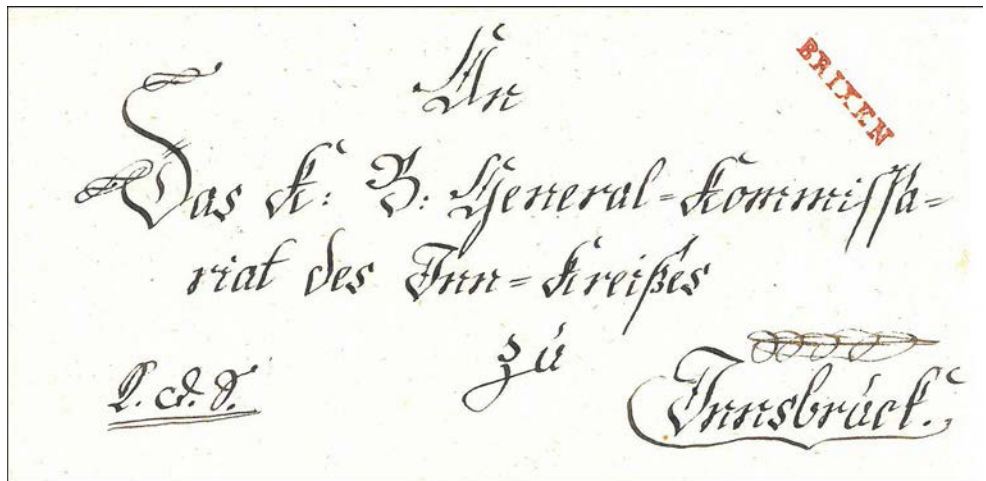 An
BRIXEN
Das K: B: General-Kommissa-
riat des Inn-Kreißes
zu
Innsbruck.